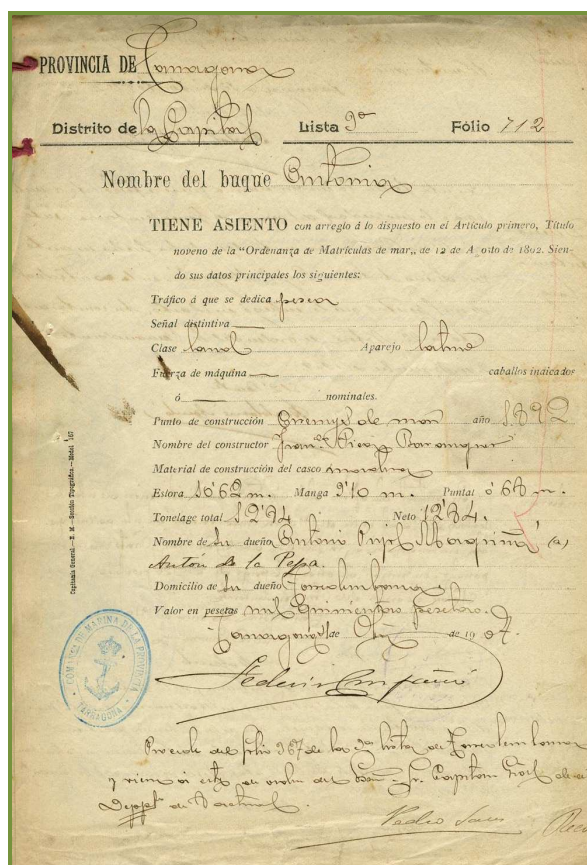 PROVINCIA DE Tarragona
Distrito de la Capital Lista 3ª Fólio 712
Nombre del buque Antonia
TIENE ASIENTO con arreglo á lo dispuesto en el Artículo primero, Título
noveno de la “Ordenanza de Matrículas de mar„ de 12 de A osto de 1802. Sien-
do sus datos principales los siguientes:
Tráfico á que se dedica pesca
Señal distintiva
Clase laud Aparejo latino
Fuerza de máquina caballos indicados
ó nominales.
Punto de construcción de mar año 1892
Nombre del constructor
Material de construcción del casco madera
Eslora 10'62 m. Manga 3'10 m. Puntal 0'68 m.
Tonelage total Neto
Nombre de su dueño Antonio Pujol (a)
Antón de la Pepa.
Domicilio de su dueño Torredembarra
Valor en pesetas mil quinientas pesetas.
Tarragona de de 19
Procede del folio 367 de la 3ª lista de Torredembarra
y viene á esta de orden del Sr. Capitan
de
Pedro
COMANDª DE MARINA DE LA PROVINCIA
TARRAGONA
Capitanía General.—E. M.—Sección Tipográfica.—Model 167